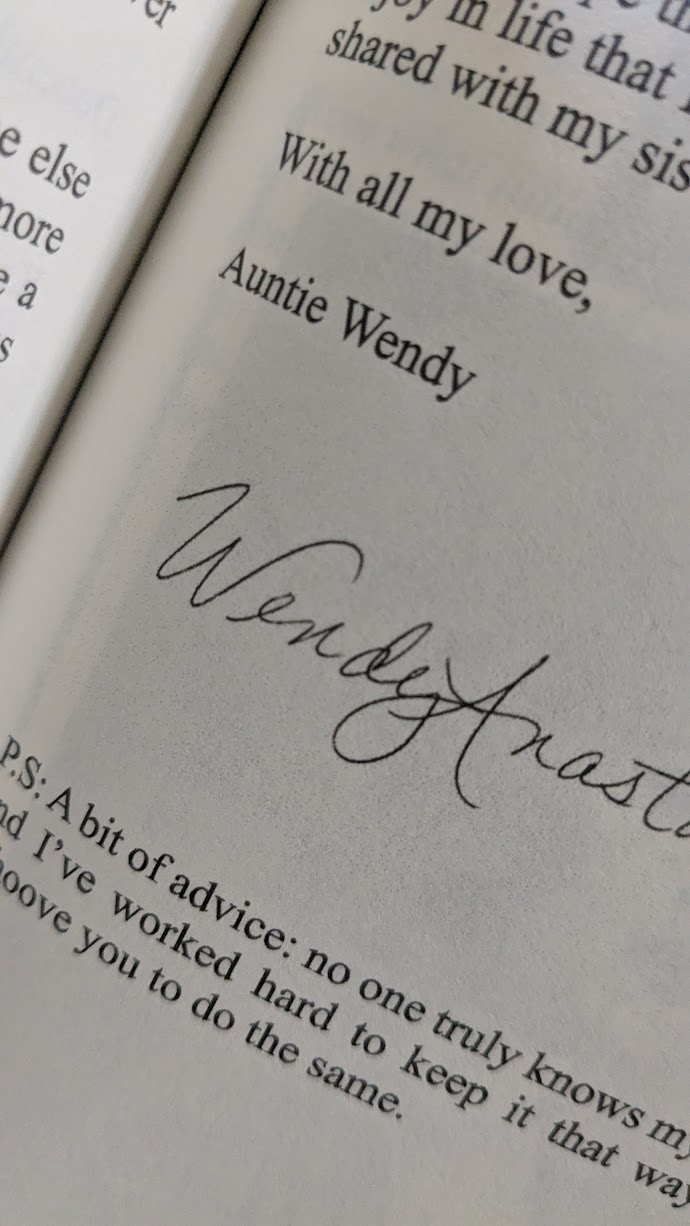 er
e else
more
e a
s
joy in life that
shared with my sis
With all my love,
Auntie Wendy
Wendy Anasta
P.S: A bit of advice: no one truly knows my
nd I've worked hard to keep it that way
hoove you to do the same.